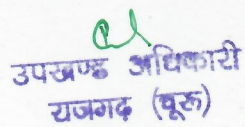 उपखण्ड अधिकारी
राजगढ़ (चूरू)